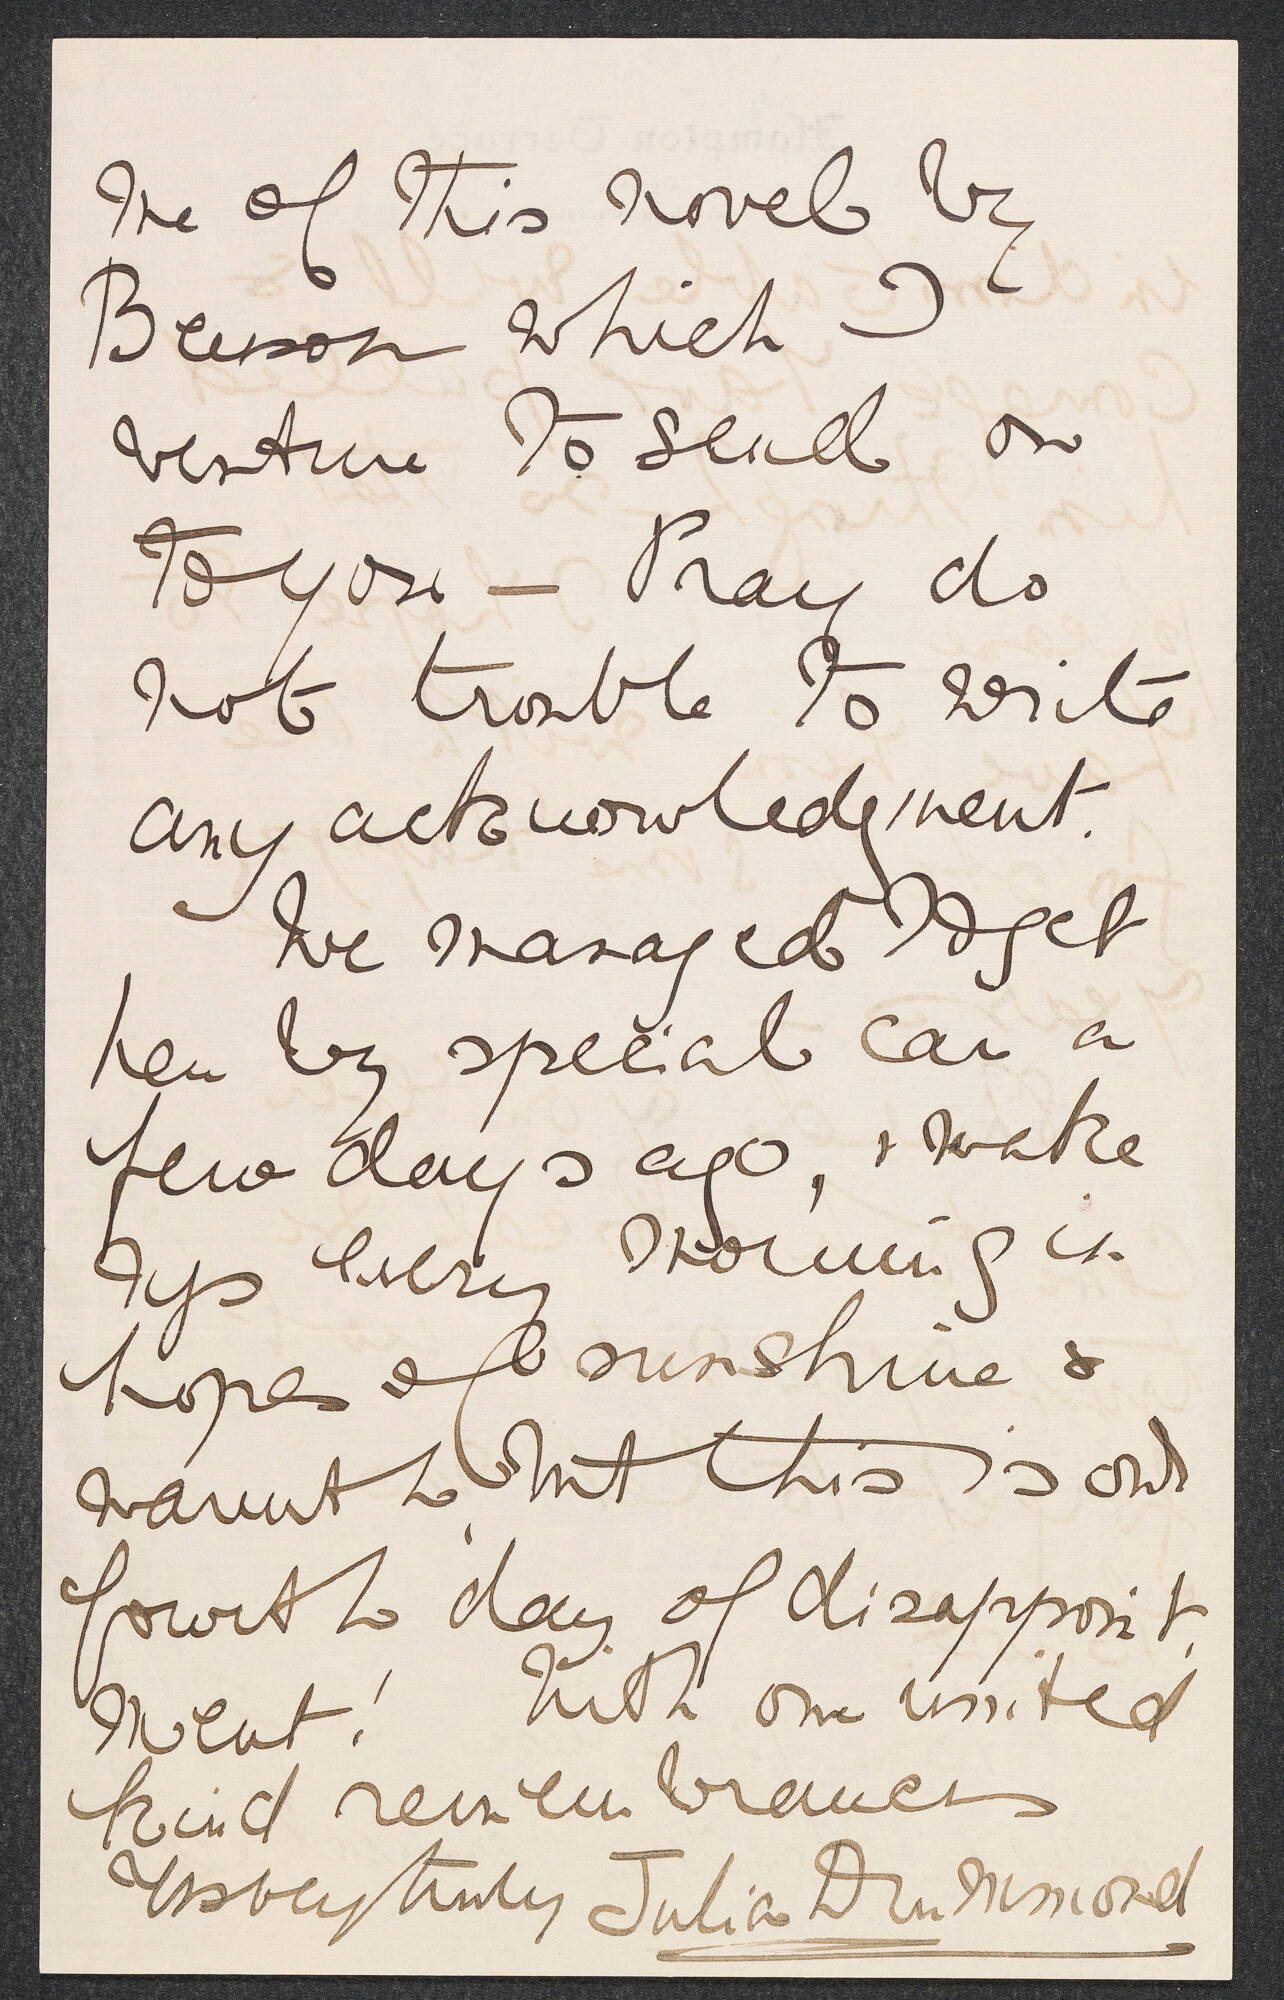 me of this novel by
Benson which I
venture to send on
to you — Pray do
not trouble to write
any acknowledgment.
We managed to get
here by special car a
few days ago, & wake
up every morning in
hopes of sunshine &
warmth, but this is our
fourth day of disappoint
ment! With our united
kind remembrances
Yrs very truly Julia Drummond